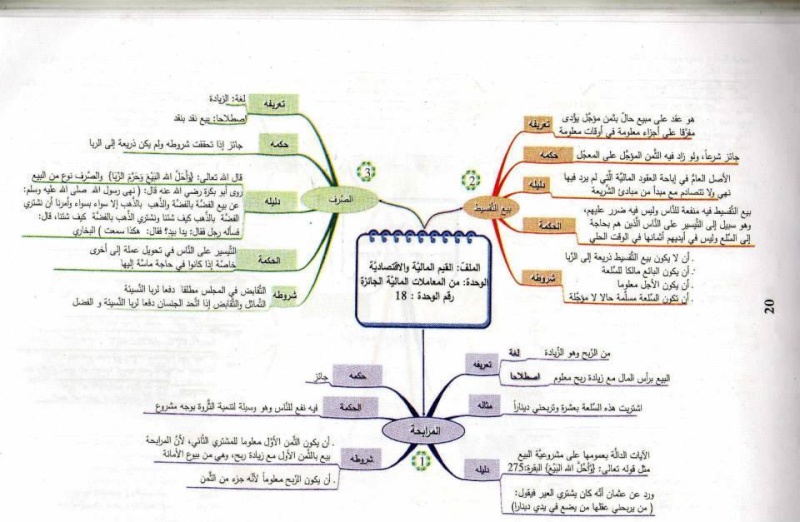 الملفّ: القيم الماليّة والاقتصاديّة
الوحدة: من المعاملات الماليّة الجائزة
رقم الوحدة : 18
1
المرابحة
تعريفه
لغة
من الرّبح وهو الزّيادة
اصطلاحا
البيع برأس المال مع زيادة ربح معلوم
مثاله
اشتريت هذه السّلعة بعشرة وتربحني ديناراً
دليله
الآيات الدالّة بعمومها على مشروعيّة البيع
مثل قوله تعالى: {وَأَحَلَّ الله البَيْعَ} البقرة:275
ورد عن عثمان أنّه كان يشتري العير فيقول:
( من يربحني عقلها من يضع في يدي دينارا)
حكمه
جائز
الحكمة
فيه نفع للنّاس وهو وسيلة لتنمية الثّروة بوجه مشروع
شروطه
. أن يكون الثّمن الأوّل معلوما للمشتري الثّاني، لأنّ المرابحة
بيع بالثّمن الأول مع زيادة ربح، وهي من بيوع الأمانة
. أن يكون الرّبح معلوماً لأنّه جزء من الثّمن
2
بيع التّقسيط
تعريفه
هو عقد على مبيع حالّ بثمن مؤجّل يؤدّى
مفرّقا على أجزاء معلومة في أوقات معلومة
حكمه
جائز شرعاً، ولو زاد فيه الثّمن المؤجّل على المعجّل
دليله
الأصل العامّ في إباحة العقود الماليّة الّتي لم يرد فيها
نهي ولا تتصادم مع مبدأ من مبادئ الشّريعة
الحكمة
بيع التّقسيط فيه منفعة للنّاس وليس فيه ضرر عليهم،
وهو سبيل إلى التّيسير على النّاس الّذين هم بحاجة
إلى السّلع وليس في أيديهم أثمانها في الوقت الحلي
شروطه
. أن لا يكون بيع التّقسيط ذريعة إلى الرّبا
. أن يكون البائع مالكا للسّلعة
. أن يكون الأجل معلوما
. أن تكون السّلعة مسلّمة حالا لا مؤجّلة
3
الصّرف
تعريفه
لغة: الزّيادة
اصطلاحا: بيع نقد بنقد
حكمه
جائز إذا تحققت شروطه ولم يكن ذريعة إلى الربا
دليله
قال الله تعالى: {وَأَحَلَّ الله البَيْعَ وَحَرَّمَ الرِّبَا} والصّرف نوع من البيع
روى أبو بكرة رضي الله عنه قال: ( نهى رسول الله صلى الله عليه وسلم:
عن بيع الفضّة بالفضّة والذّهب بالذّهب إلا سواء بسواء وأمرنا أن نشتري
الفضّة بالذّهب كيف شئنا ونشتري الذّهب بالفضّة كيف شئنا، قال:
فسأله رجل فقال: يدا بيد؟ فقال: هكذا سمعت ) البخاري
الحكمة
التّيسير على النّاس في تحويل عملة إلى أخرى
خاصّة إذا كانوا في حاجة ماسّة إليها
شروطه
التّقابض في المجلس مطلقا دفعا لربا النّسيئة
التّماثل والتّقابض إذا اتّحد الجنسان دفعا لربا النّسيئة و الفضل
20